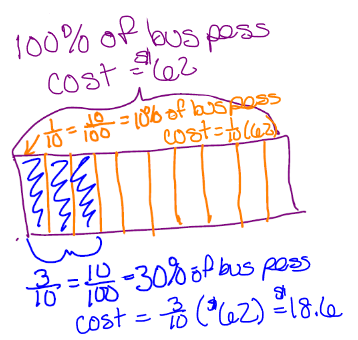 100% of bus pass
cost = $62
1/10 = 10/100 = 10% of bus pass
cost = 1/10 (62)
3/10 = 10/100 = 30% of bus pass
cost = 3/10 ($62) = $18.6